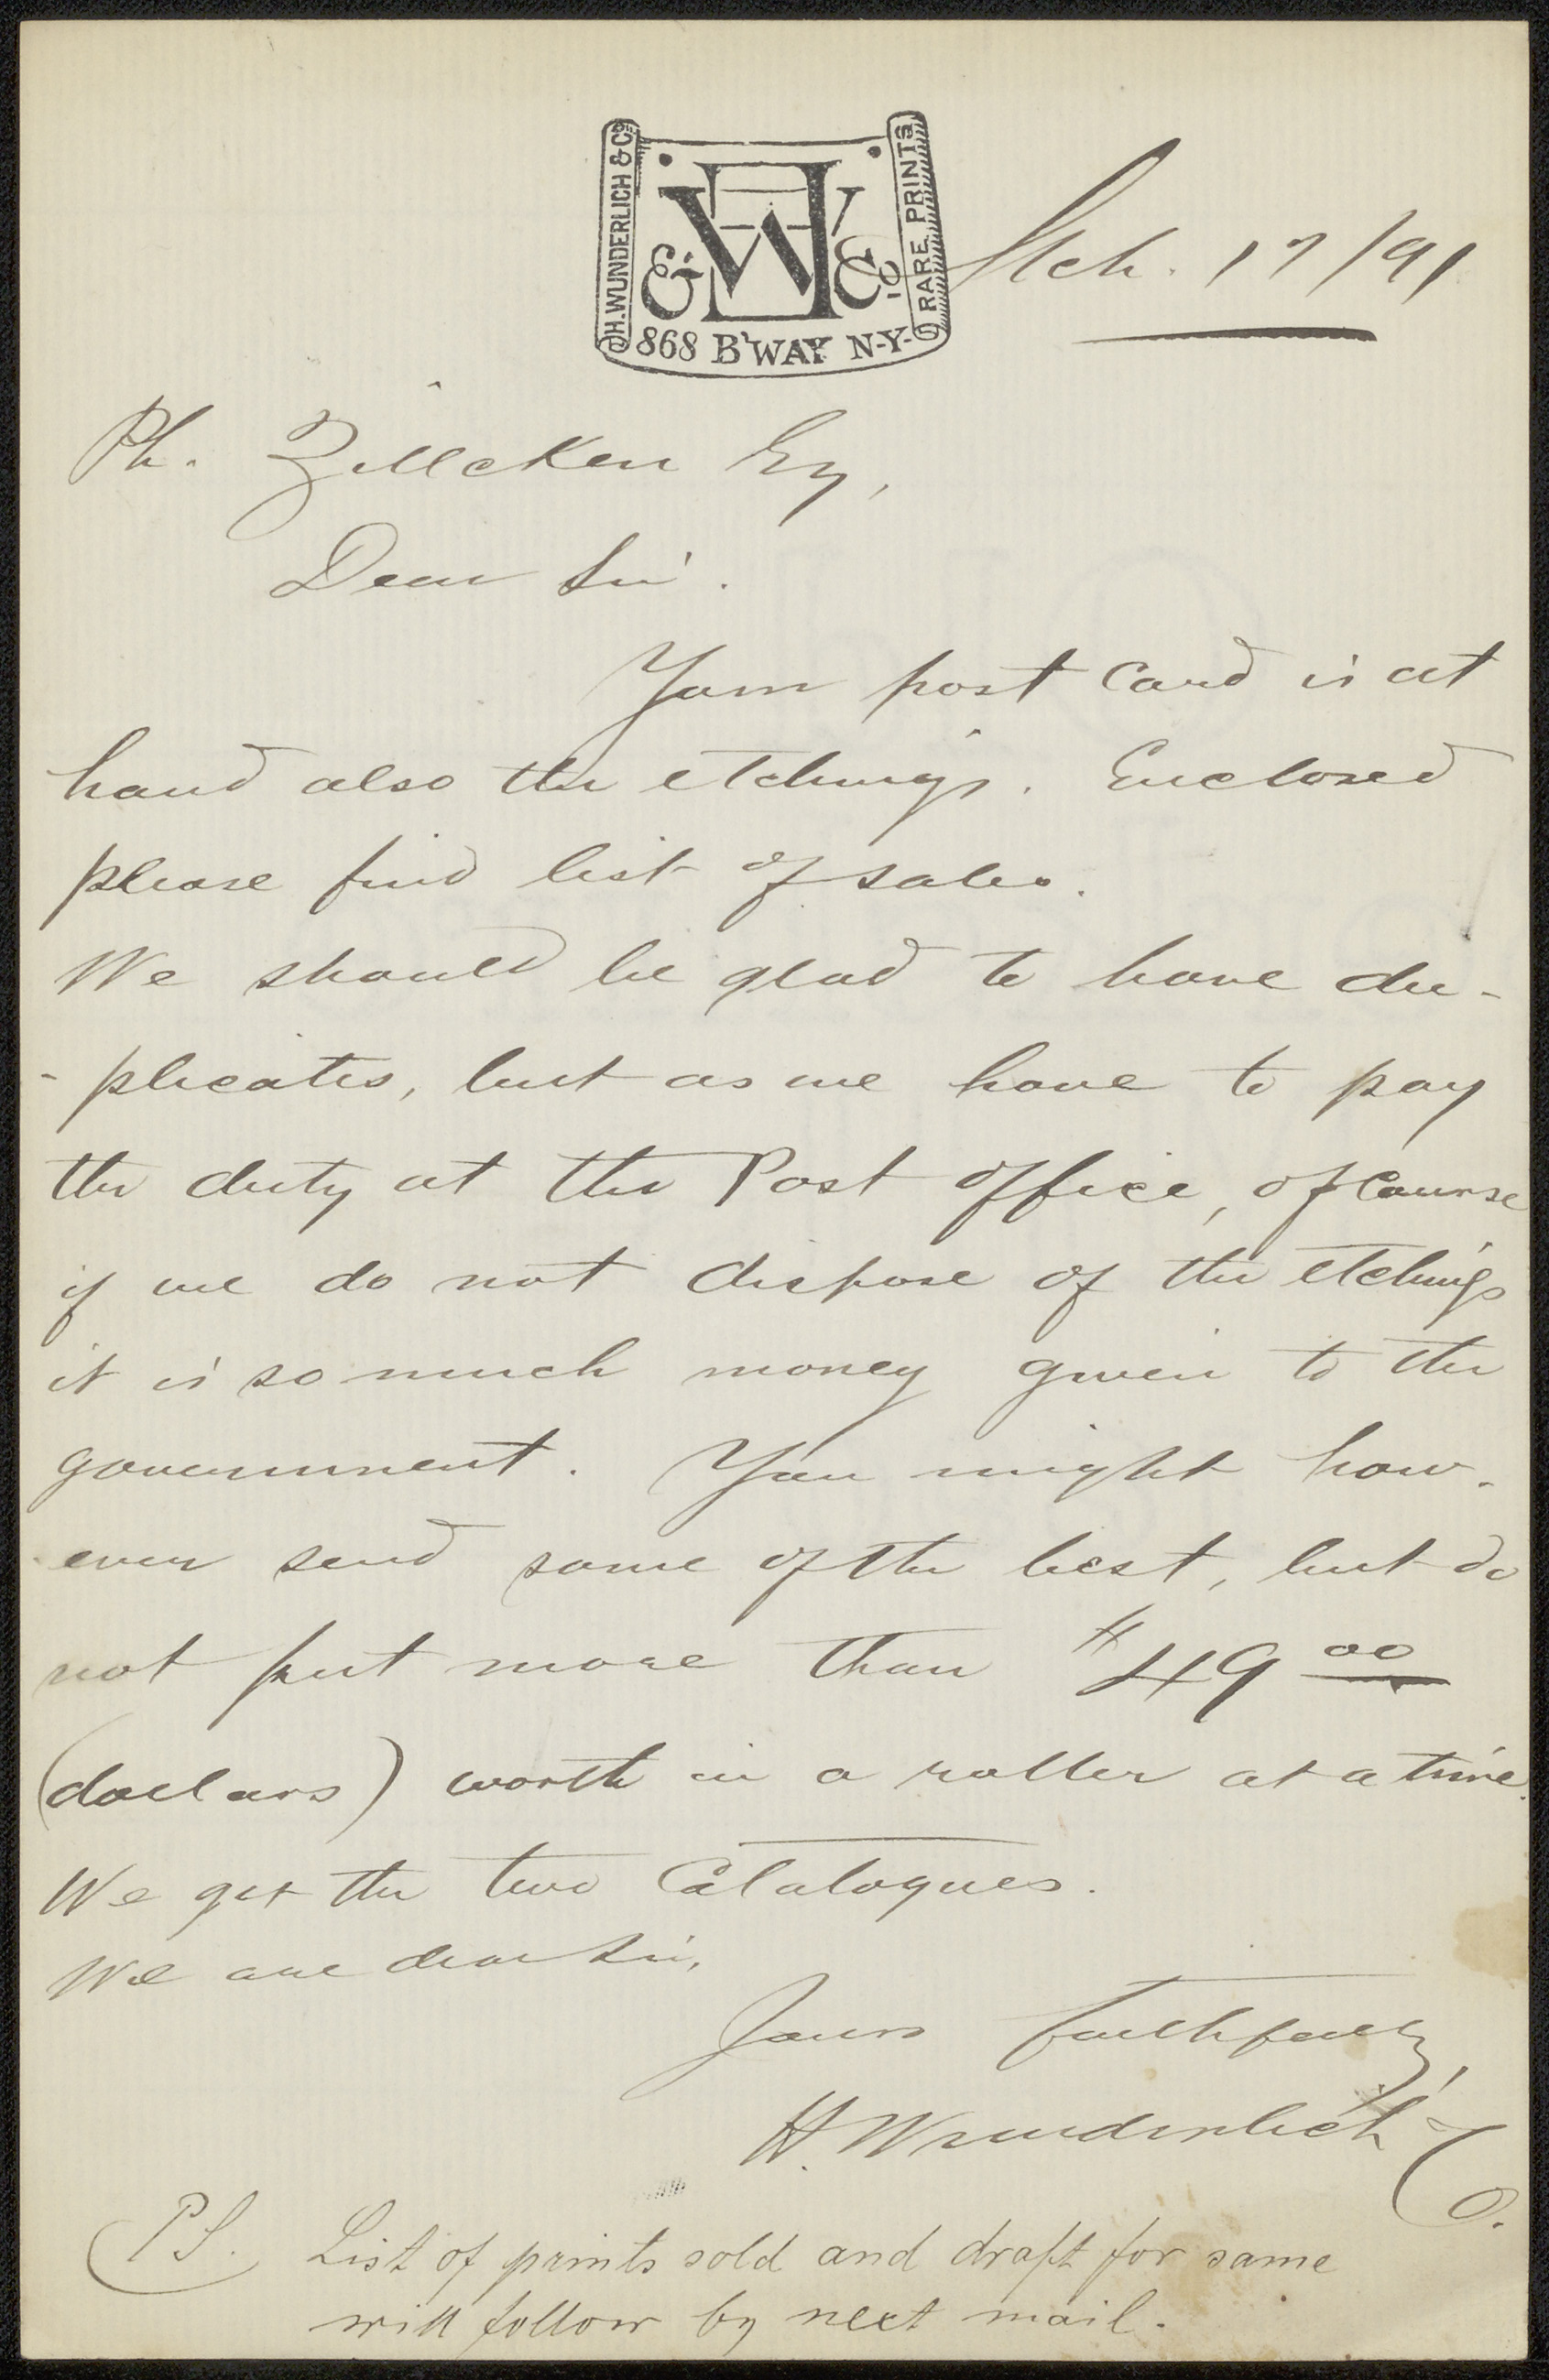 H. WUNDERLICH & Co.
RARE PRINTS
& HW & Co.
868 B'WAY N-Y-
Mch. 17/91
Ph. Zilcken Esq,
Dear Sir.
Your post card is at
hand also the etchings. Enclosed
please find list of sales.
We should be glad to have du-
-plicates, but as we have to pay
the duty at the Post office, of course
if we do not dispose of the etchings
it is so much money given to the
government. You might how-
ever send some of the best, but do
not put more than $49 00
(dollars) worth in a roller at a time.
We got the two Catalogues.
We are dear Sir,
Yours faithfully,
H. Wunderlich & Co.
P.S. List of prints sold and draft for same
will follow by next mail.